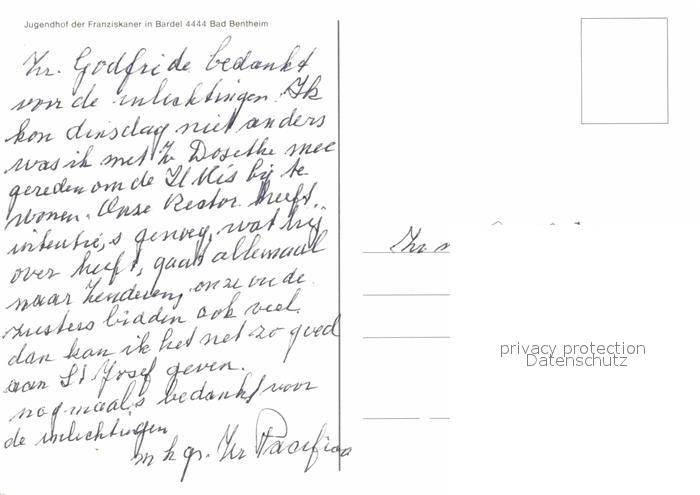 Jugendhof der Franziskaner in Bardel 4444 Bad Bentheim
Zr. Godfride bedankt
voor de inlichtingen. Ik
kon dinsdag niet anders
was ik met Zr Dosethe mee
gereden om de H Mis bij te
wonen. Onze Rector heeft
intentie,s genoeg, wat hij
over heeft, gaat allemaal
naar Zenderen, onze oude
zusters bidden ook veel.
dan kan ik het net zo goed
aan St Josef geven.
nogmaals bedankt voor
de inlichtingen
m h gr. Zr Pacifica
Zr
privacy protection
Datenschutz